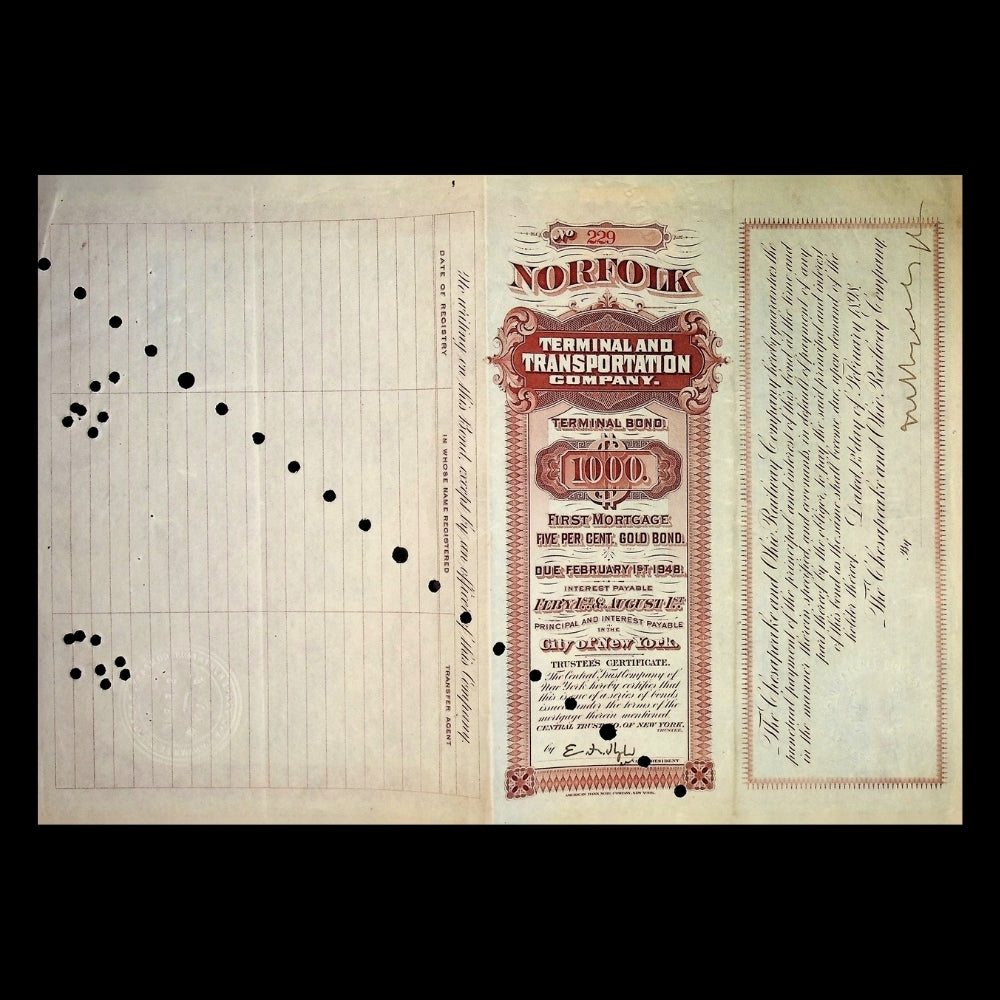 No 229
NORFOLK
TERMINAL AND
TRANSPORTATION
COMPANY.
TERMINAL BOND.
$1000.
FIRST MORTGAGE
FIVE PER CENT. GOLD BOND.
DUE FEBRUARY 1ST 1948.
INTEREST PAYABLE
FEBY 1ST & AUGUST 1ST
PRINCIPAL AND INTEREST PAYABLE
IN THE
City of New York.
TRUSTEE'S CERTIFICATE.
The Central Trust Company of
New York hereby certifies that
this is one of a series of bonds
issued under the terms of the
mortgage therein mentioned.
CENTRAL TRUST CO. OF NEW YORK,
TRUSTEE.
by
PRESIDENT
AMERICAN BANK NOTE COMPANY, NEW YORK.
No writing on this Bond, except by an officer of this Company.
DATE OF REGISTRY
IN WHOSE NAME REGISTERED
TRANSFER AGENT
The Chesapeake and Ohio Railway Company hereby guarantees the
punctual payment of the principal and interest of this bond at the time and
in the manner therein specified, and covenants, in default of payment of any
part thereof by the obligor, to pay the said principal and interest
of this bond as the same shall become due, upon demand of the
holder thereof. Dated 1st day of February 1898.
The Chesapeake and Ohio Railway Company,
By